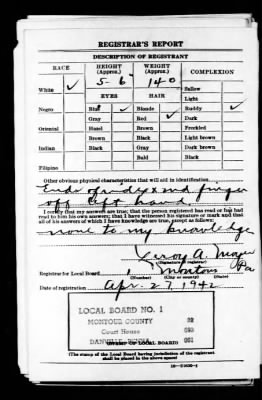 REGISTRAR'S REPORT
DESCRIPTION OF REGISTRANT
RACE
HEIGHT (Approx.)
WEIGHT (Approx.)
COMPLEXION
White ✓
5-6
140
Sallow
EYES
HAIR
Light
Negro
Blue ✓
Blonde
Ruddy ✓
Gray
Red ✓
Dark
Oriental
Hazel
Brown
Freckled
Brown
Black
Light brown
Indian
Black
Gray
Dark brown
Bald
Black
Filipino
Other obvious physical characteristics that will aid in identification
Ends of index and finger
off left hand.
I certify that my answers are true; that the person registered has read or has had
read to him his own answers; that I have witnessed his signature or mark and that
all of his answers of which I have knowledge are true, except as follows:
none to my knowledge
Leroy A.
(Signature of registrar)
Registrar for Local Board 1 Montour Pa
(Number) (City or county) (State)
Date of registration Apr. 27, 1942
LOCAL BOARD NO. 1
MONTOUR COUNTY
Court House
DANVILLE, PENNA.
(STAMP OF LOCAL BOARD)
(The stamp of the Local Board having jurisdiction of the registrant
shall be placed in the above space)